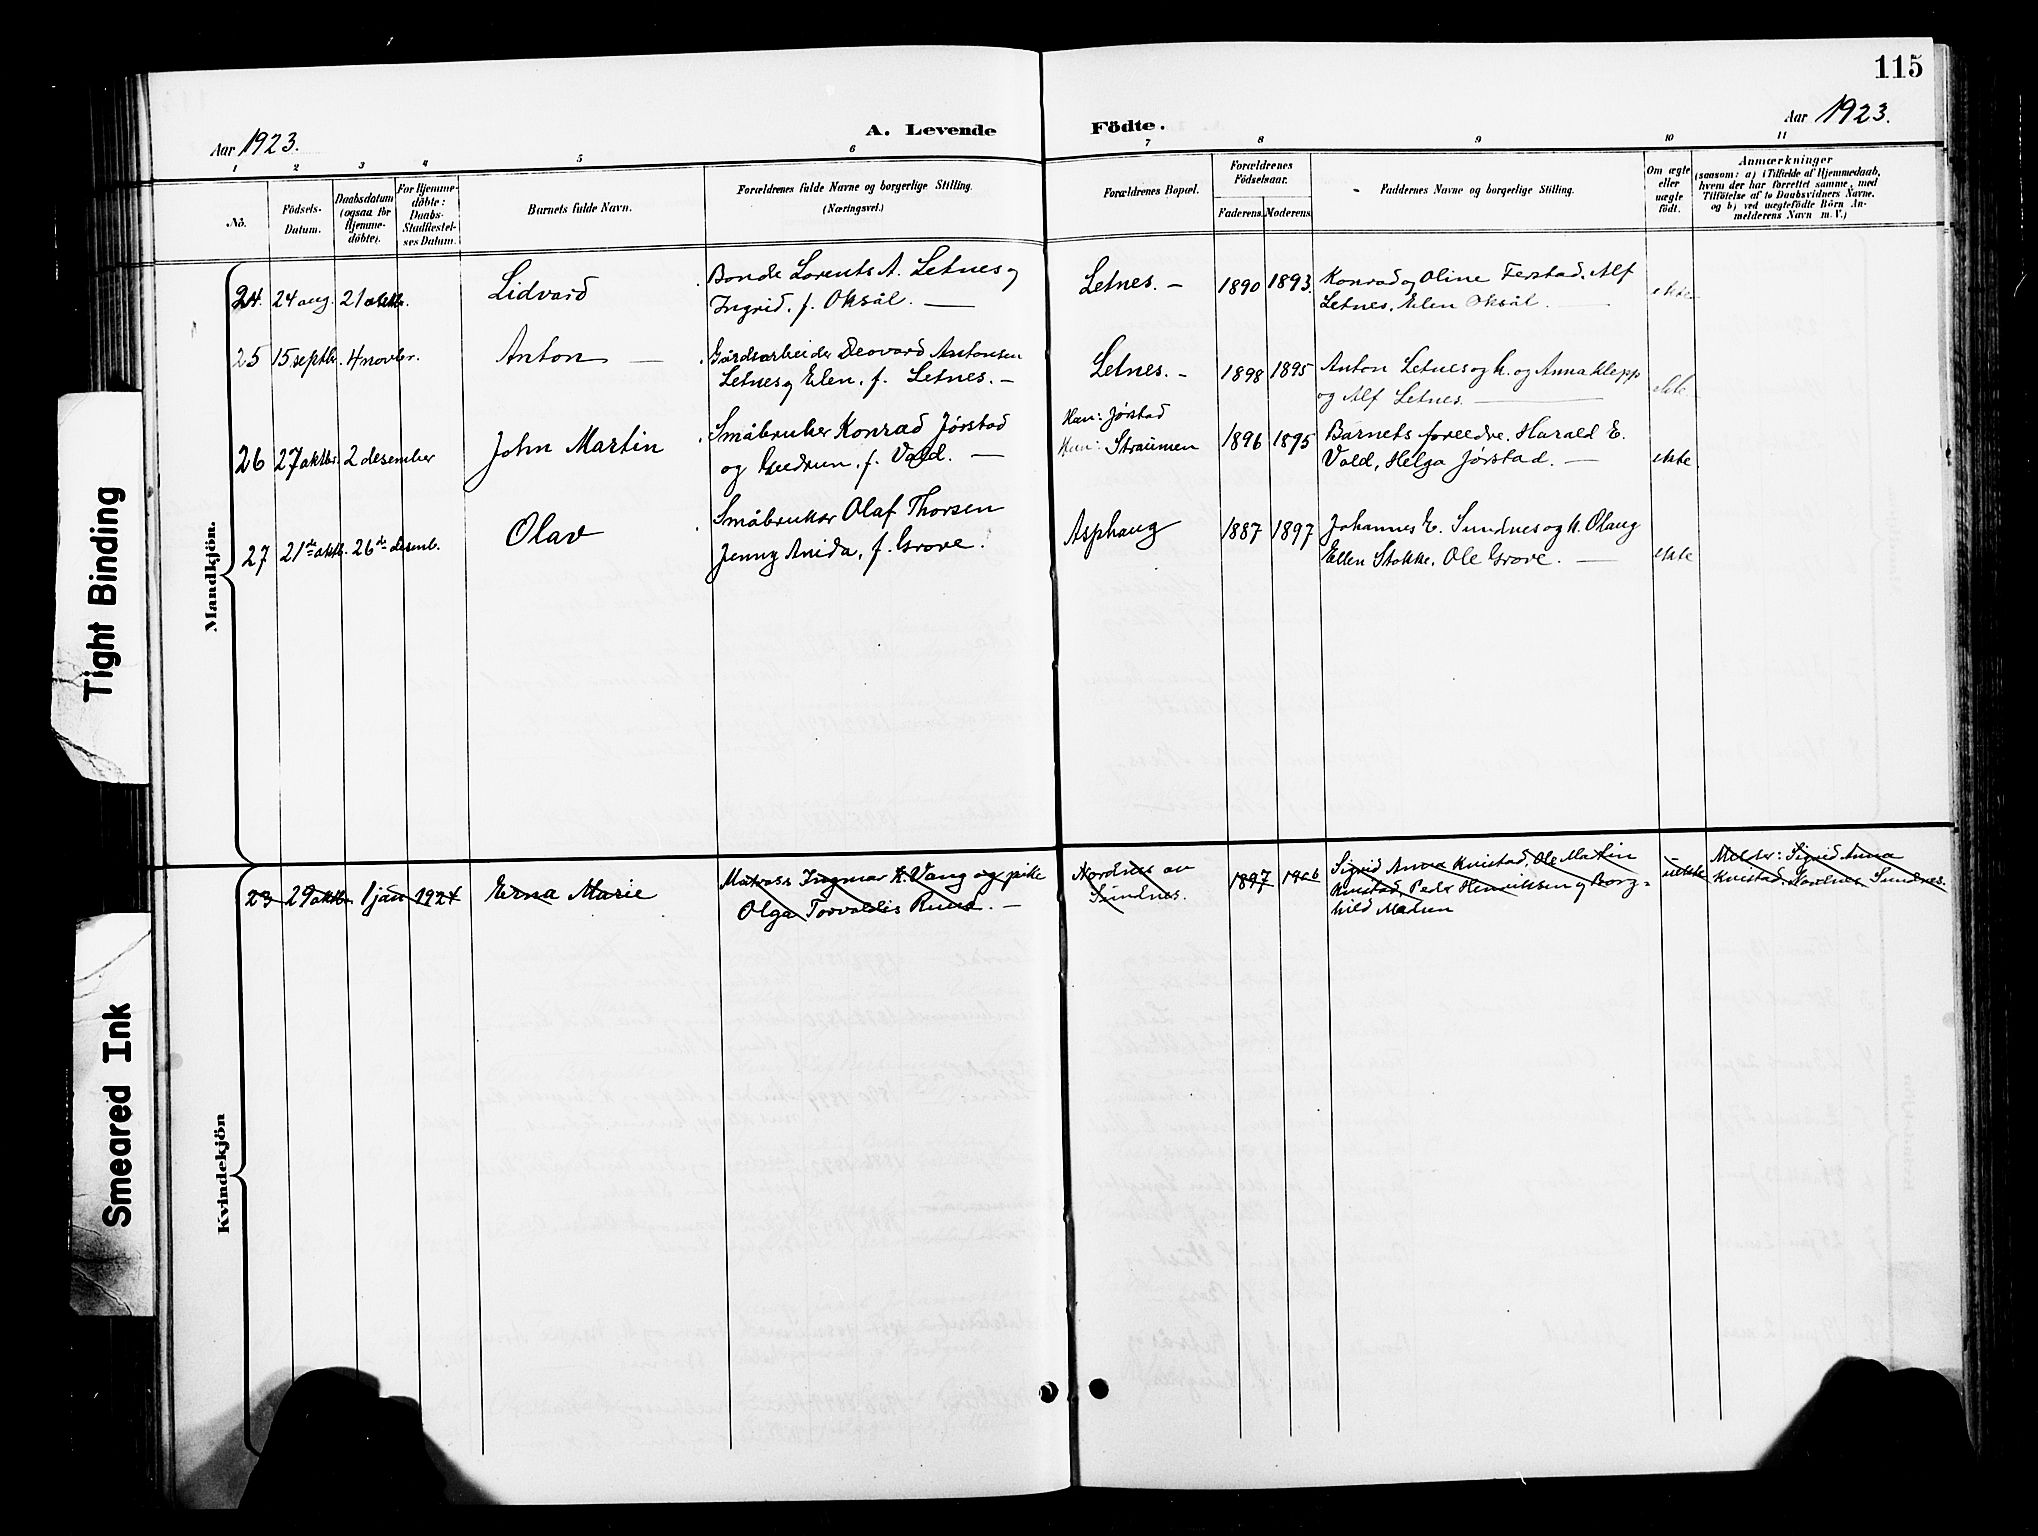 115
Aar 1923.
A. Levende Födte.
Aar 1923.
1 2 3 4 5 6 7 8 9 10 11
No.
Födsels-
Datum.
Daabsdatum
(ogsaa for
Hjemme-
döbte).
For Hjemme-
döbte:
Daabs-
Stadfiestel-
ses Datum.
Barnets fulde Navn.
Forældrenes fulde Navne og borgerlige Stilling.
(Næringsvei.)
Forældrenes Bopæl.
Forældrenes
Födselsaar.
Faderens. Moderens.
Faddernes Navne og borgerlige Stilling.
Om ægte
eller
uægte
födt.
Anmærkninger
(saasom: a) i Tilfælde af Hjemmedaab,
hvem der har forrettet samme, med
Tilföielse af to Daabsvidners Navne.
og b) ved uægtefödte Börn An-
melderens Navn m. V.)
Mandkjön.
24. 24 aug. 21 oktbr. Lidvard
Bonde Lorents A. Letnes og
Ingrid, f. Oksål. —
Letnes. - 1890 1893.
Konrad og Oline Ferstad, Alf
Letnes, Elen Oksål. —
ekte
25 15 septbr. 4 novbr. Anton —
Gårdsarbeider Deovard Antonsen
Letnes og Elen, f. Letnes. —
Letnes. - 1898 1895
Anton Letnes og h. og Anna Klepp
og Alf Letnes. —
ekte
26 27 oktbr. 2 desember John Martin
Småbruker Konrad Jørstad
og Gudrun, f. Vold. —
Han: Jørstad
Hun: Straumen
1896 1895
Barnets foreldre. Harald E.
Vold, Helga Jørstad. —
ekte
27 21de oktb. 26de desemb. Olav
Småbruker Olaf Thorsen
Jenny Anida, f. Grove.
Asphaug 1887 1897
Johannes E. Sundnes og h. Olaug
Ellen Stokke, Ole Grove. —
ekte
Kvindekjön
23 29 oktbr 1 jan 1924 Erna Marie
Matros Ingmar K. Vang og pike
Olga Torvaldis Rund. —
Nordnes av
Sundnes.
1897 1906
Sigrid Anna Kvistad, Ole Martin
Kvistad, Peder Henriksen og Borg-
hild Madsen
uekte
Melder: Sigrid Anna
Kvistad, Nordnes Sundnes.
Tight Binding
Smeared Ink